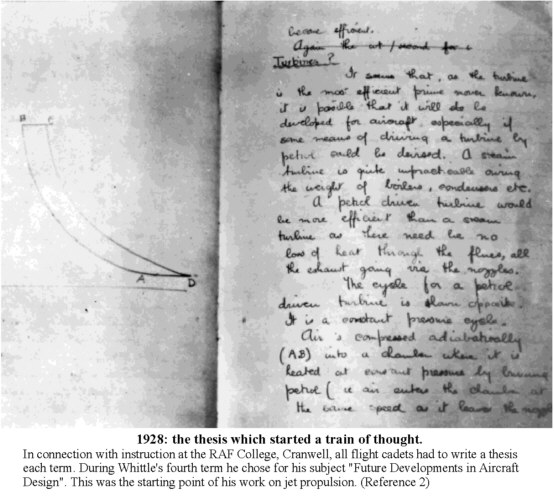 B C
A
D
become efficient.
Again the
Turbines ?
It seems that, as the turbine
is the most efficient prime mover known,
it is possible that it will be
developed for aircraft, especially if
some means of driving a turbine by
petrol could be devised. A steam
turbine is quite impracticable owing
the weight of boilers, condensers etc.
A petrol driven turbine would
be more efficient than a steam
turbine as there need be no
loss of heat through the flues, all
the exhaust going via the nozzles.
The cycle for a petrol
driven turbine is shown opposite.
It is a constant pressure cycle.
Air is compressed adiabatically
(AB) into a chamber where it is
heated at constant pressure by burning
petrol (ie air enters the chamber at
the same speed as it leaves the
1928: the thesis which started a train of thought.
In connection with instruction at the RAF College, Cranwell, all flight cadets had to write a thesis
each term. During Whittle's fourth term he chose for his subject "Future Developments in Aircraft
Design". This was the starting point of his work on jet propulsion. (Reference 2)